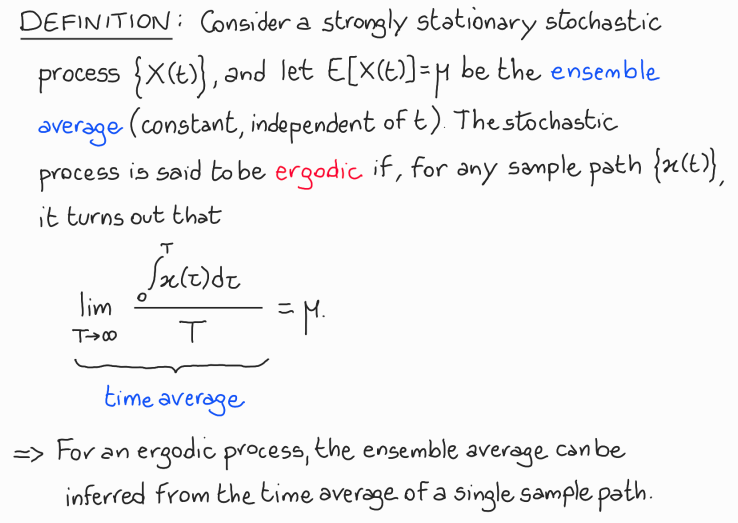 DEFINITION: Consider a strongly stationary stochastic
process {X(t)}, and let E[X(t)]=μ be the ensemble
average (constant, independent of t). The stochastic
process is said to be ergodic if, for any sample path {x(t)},
it turns out that
lim_{T→∞} \frac{∫_0^T x(τ)dτ}{T} = μ.
time average
=> For an ergodic process, the ensemble average can be
inferred from the time average of a single sample path.